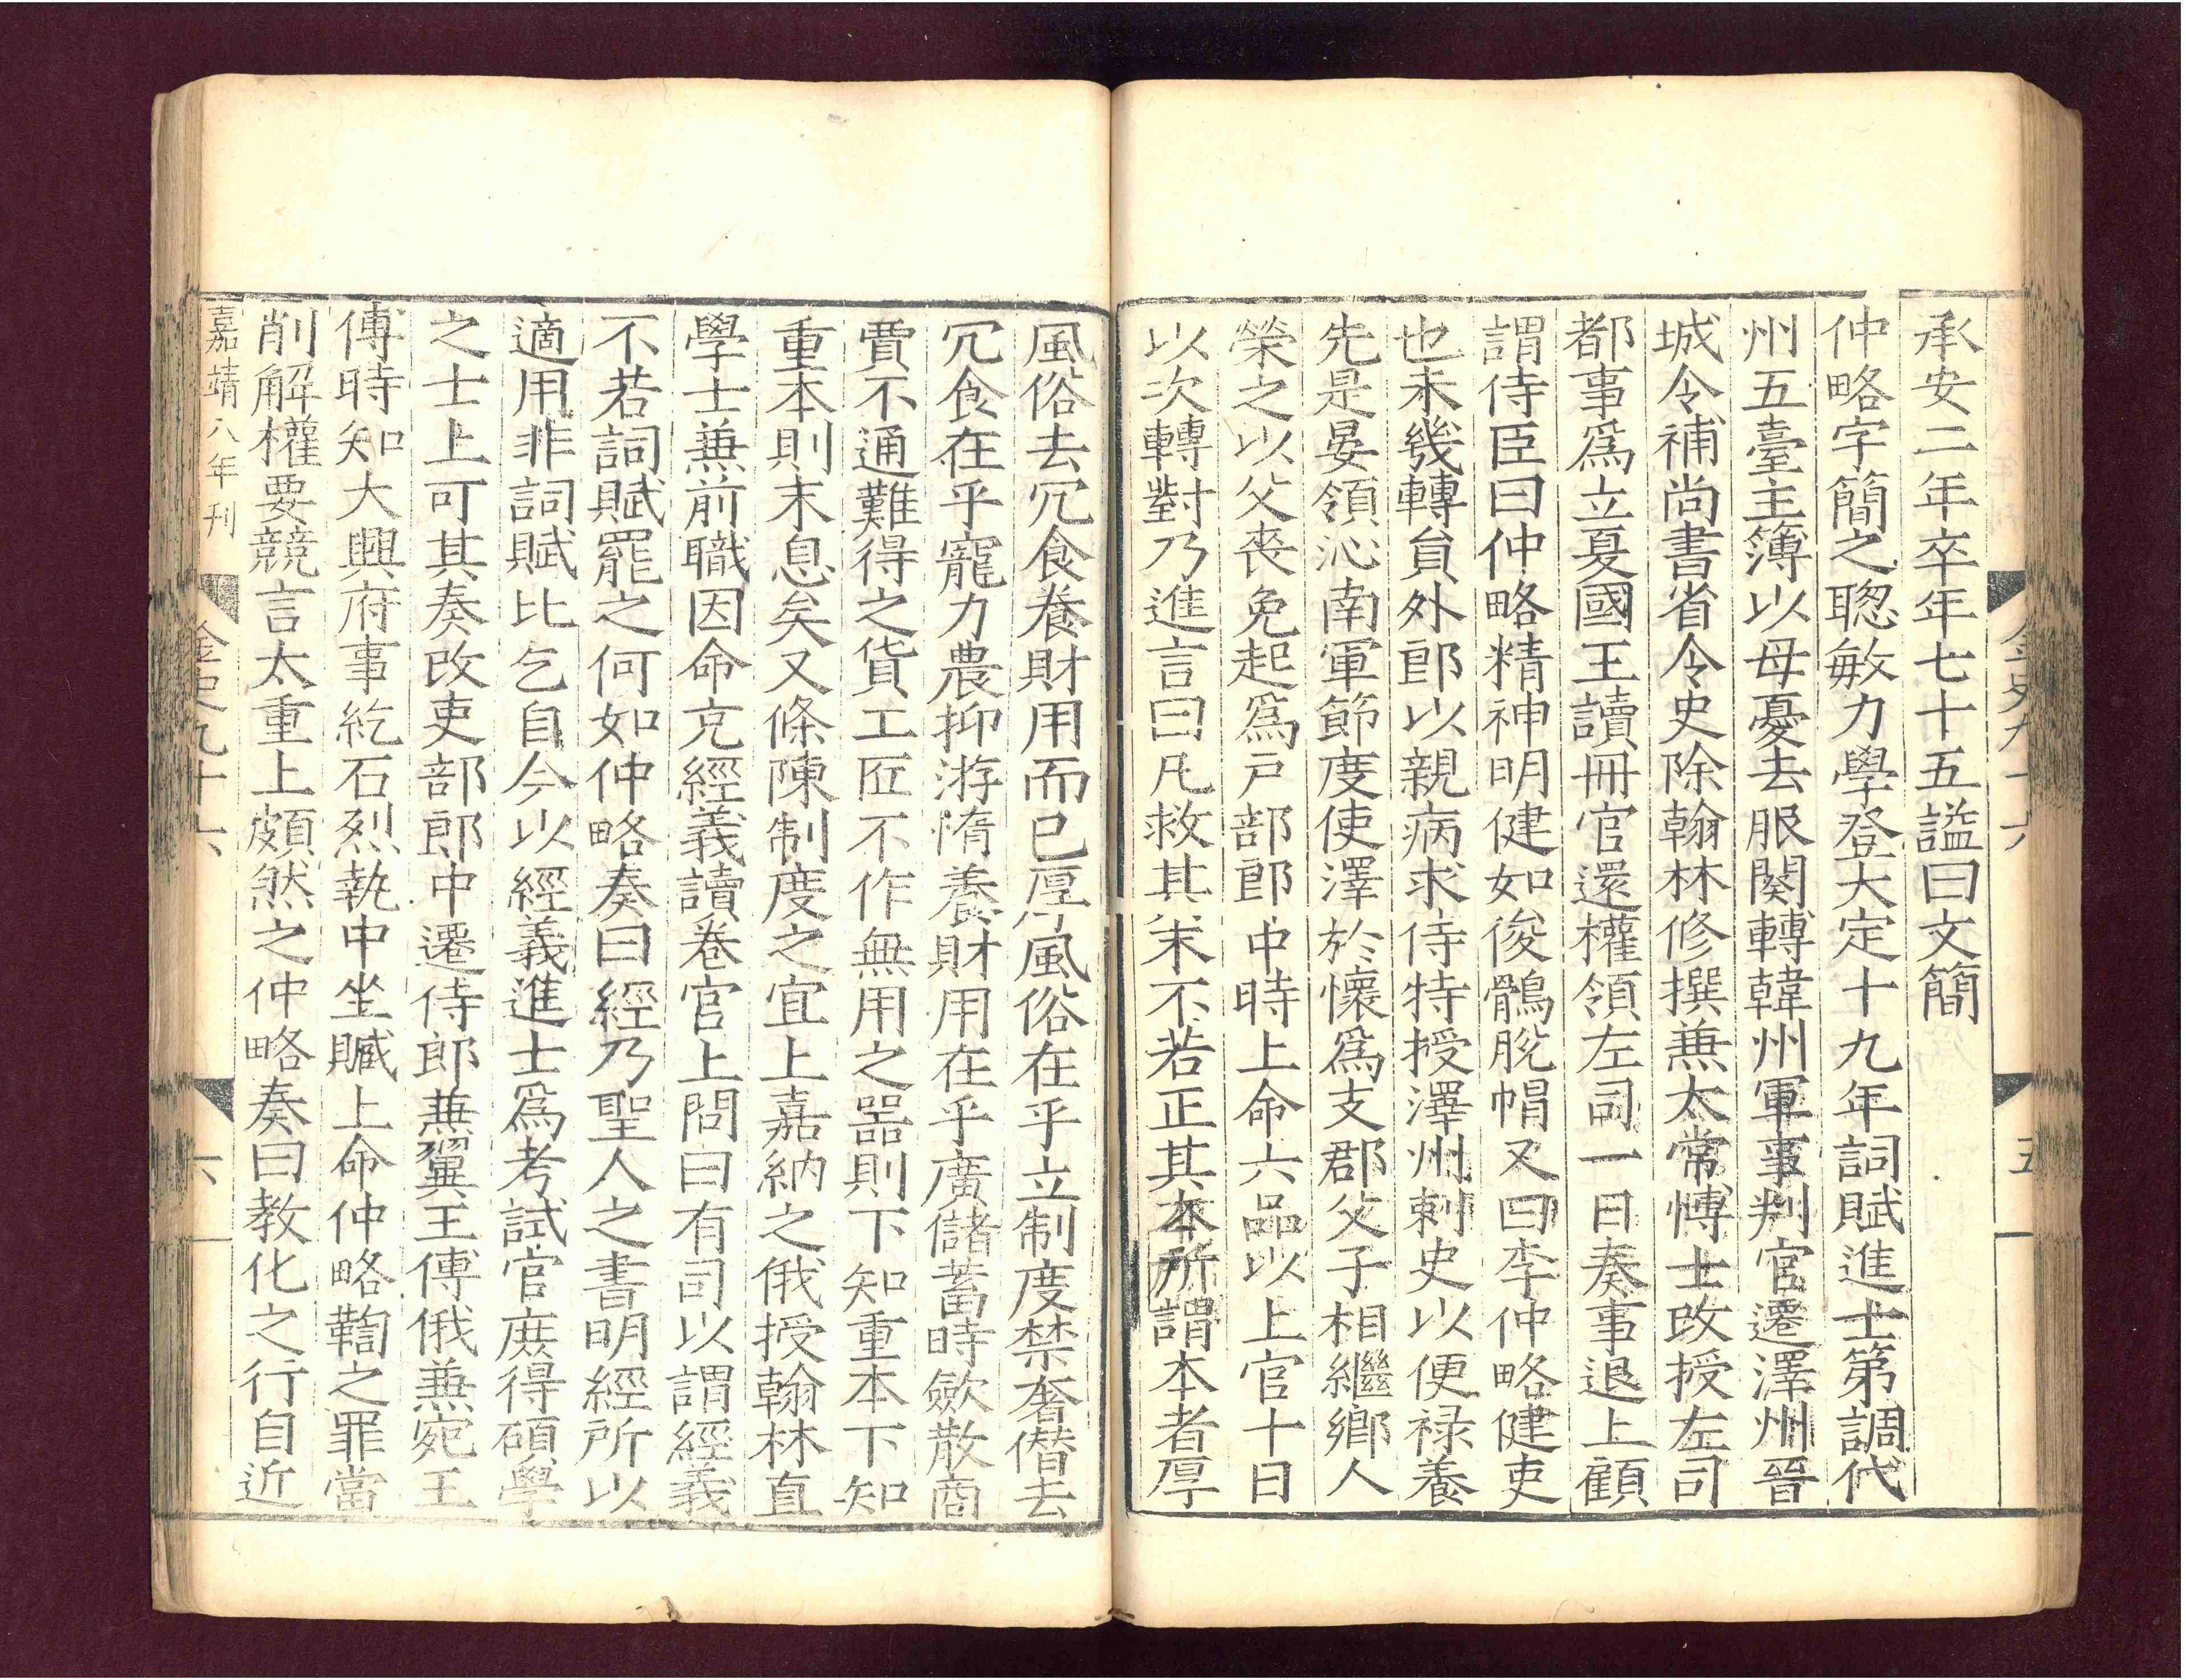 承安二年卒年七十五謚曰文簡
仲略字簡之聰敏力學登大定十九年詞賦進士第調代
州五臺主簿以母憂去服闋轉韓州軍事判官遷澤州晉
城令補尚書省令史除翰林修撰兼太常博士改授左司
都事爲立夏國王讀冊官還權領左司一日奏事退上顧
謂侍臣曰仲略精神明健如俊鶻脫帽又曰李仲略健吏
也未幾轉貟外郎以親病求侍特授澤州刺史以便禄養
先是晏領沁南軍節度使澤於懷爲支郡父子相繼鄉人
榮之以父喪免起爲戸部郎中時上命六品以上官十日
以次轉對乃進言曰凡救其末不若正其本所謂本者厚
風俗去冗食養財用而已厚風俗在乎立制度禁奢僭去
冗食在乎寵力農抑游惰養財用在乎廣儲蓄時歛散商
賈不通難得之貨工匠不作無用之噐則下知重本下知
重本則末息矣又條陳制度之宜上嘉納之俄授翰林直
學士兼前職因命充經義讀卷官上問曰有司以謂經義
不若詞賦罷之何如仲略奏曰經乃聖人之書明經所以
適用非詞賦比乞自今以經義進士爲考試官庶得碩學
之士上可其奏改吏部郎中遷侍郎兼翼王傅俄兼宛王
傅時知大興府事紇石烈執中坐贓上命仲略鞫之罪當
削解權要競言太重上頗然之仲略奏曰教化之行自近
嘉靖八年刊
金史九十六
六